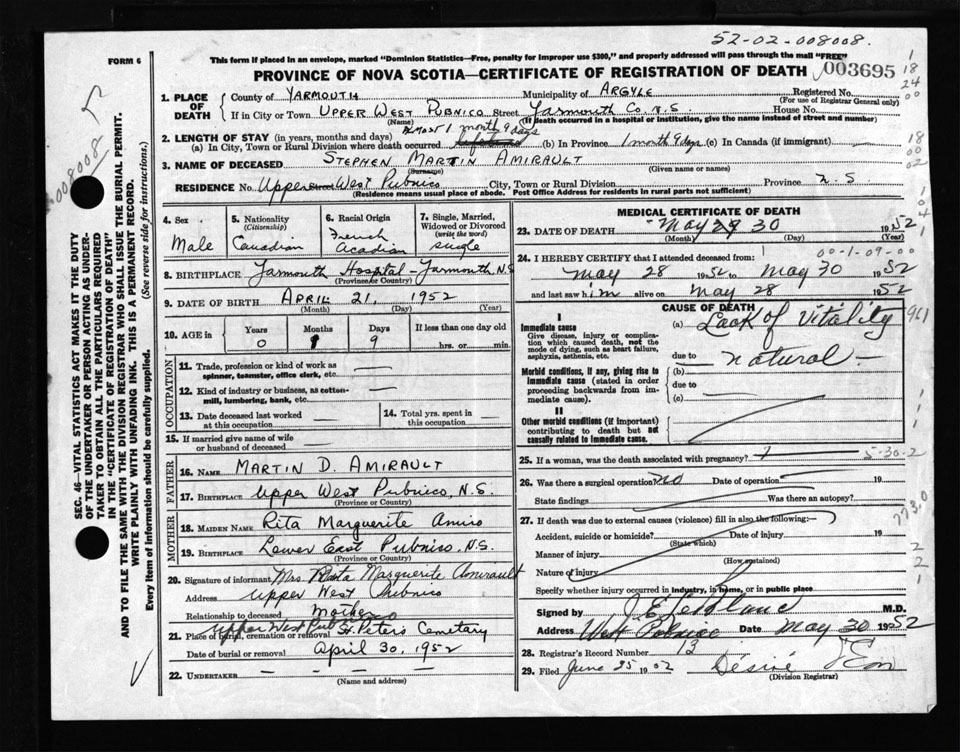 52-02-008008.
FORM 6
This form if placed in an envelope, marked "Dominion Statistics—Free, penalty for improper use $300," and properly addressed will pass through the mail "FREE"
PROVINCE OF NOVA SCOTIA—CERTIFICATE OF REGISTRATION OF DEATH 003695
1. PLACE OF DEATH
County of YARMOUTH Municipality of ARGYLE Registered No.
(For use of Registrar General only)
If in City or Town UPPER WEST PUBNICO Street Yarmouth Co. N.S. House No.
(Name) (If death occurred in a hospital or institution, give the name instead of street and number)
ALMOST 1 month 9 days
2. LENGTH OF STAY (in years, months and days)
(a) In City, Town or Rural Division where death occurred lifetime (b) In Province 1 month 9 days (c) In Canada (if immigrant)
3. NAME OF DECEASED STEPHEN MARTIN AMIRAULT
(Surname) (Given name or names)
RESIDENCE No. Upper Street West Pubnico City, Town or Rural Division Province N.S.
(Residence means usual place of abode. Post Office Address for residents in rural parts not sufficient)
4. Sex
Male
5. Nationality
(Citizenship)
Canadian
6. Racial Origin
French
Acadian
7. Single, Married, Widowed or Divorced
(write the word)
single
8. BIRTHPLACE Yarmouth Hospital - Yarmouth, N.S.
(Province or Country)
9. DATE OF BIRTH APRIL 21, 1952
(Month) (Day) (Year)
10. AGE in
Years Months Days If less than one day old
0 1 9 hrs. or min.
OCCUPATION
11. Trade, profession or kind of work as spinner, teamster, office clerk, etc. —
12. Kind of industry or business, as cotton-mill, lumbering, bank, etc. —
13. Date deceased last worked at this occupation —
14. Total yrs. spent in this occupation —
15. If married give name of wife or husband of deceased
FATHER
16. NAME MARTIN D. AMIRAULT
17. BIRTHPLACE Upper West Pubnico, N.S.
(Province or Country)
MOTHER
18. MAIDEN NAME Rita Marguerite Amiro
19. BIRTHPLACE Lower East Pubnico, N.S.
(Province or Country)
20. Signature of informant Mrs. Rita Marguerite Amirault
Address Upper West Pubnico
Relationship to deceased Mother
Upper West Pubnico
21. Place of burial, cremation or removal St. Peters Cemetary
Date of burial or removal April 30, 1952
22. UNDERTAKER — — — —
(Name and address)
MEDICAL CERTIFICATE OF DEATH
23. DATE OF DEATH May 29 30 1952
(Month) (Day) (Year)
24. I HEREBY CERTIFY that I attended deceased from:
00-1-09-00
May 28 1952 to May 30 1952
and last saw him alive on May 28 1952
CAUSE OF DEATH
I
Immediate cause
Give disease, injury or complication which caused death, not the mode of dying, such as heart failure, asphyxia, asthenia, etc.
(a) Lack of Vitality
due to natural —
Morbid conditions, if any, giving rise to immediate cause (stated in order proceeding backwards from immediate cause).
(b)
due to
(c)
II
Other morbid conditions (if important) contributing to death but not causally related to immediate cause.
25. If a woman, was the death associated with pregnancy? 5-30-2
26. Was there a surgical operation? no Date of operation 19
State findings Was there an autopsy?
27. If death was due to external causes (violence) fill in also the following:—
Accident, suicide or homicide? Date of injury 19
(State which)
Manner of injury
(How sustained)
Nature of injury
Specify whether injury occurred in industry, in home, or in public place
Signed by J E LeBlanc M.D.
Address West Pubnico Date May 30 1952
28. Registrar's Record Number 13
29. Filed June 25 1952 Désiré d'Eon
(Division Registrar)
008008
SEC. 46—VITAL STATISTICS ACT MAKES IT THE DUTY OF THE UNDERTAKER OR PERSON ACTING AS UNDERTAKER TO OBTAIN ALL THE PARTICULARS REQUIRED IN THE "CERTIFICATE OF REGISTRATION OF DEATH" AND TO FILE THE SAME WITH THE DIVISION REGISTRAR WHO SHALL ISSUE THE BURIAL PERMIT.
WRITE PLAINLY WITH UNFADING INK. THIS IS A PERMANENT RECORD.
Every item of information should be carefully supplied. (See reverse side for instructions.)